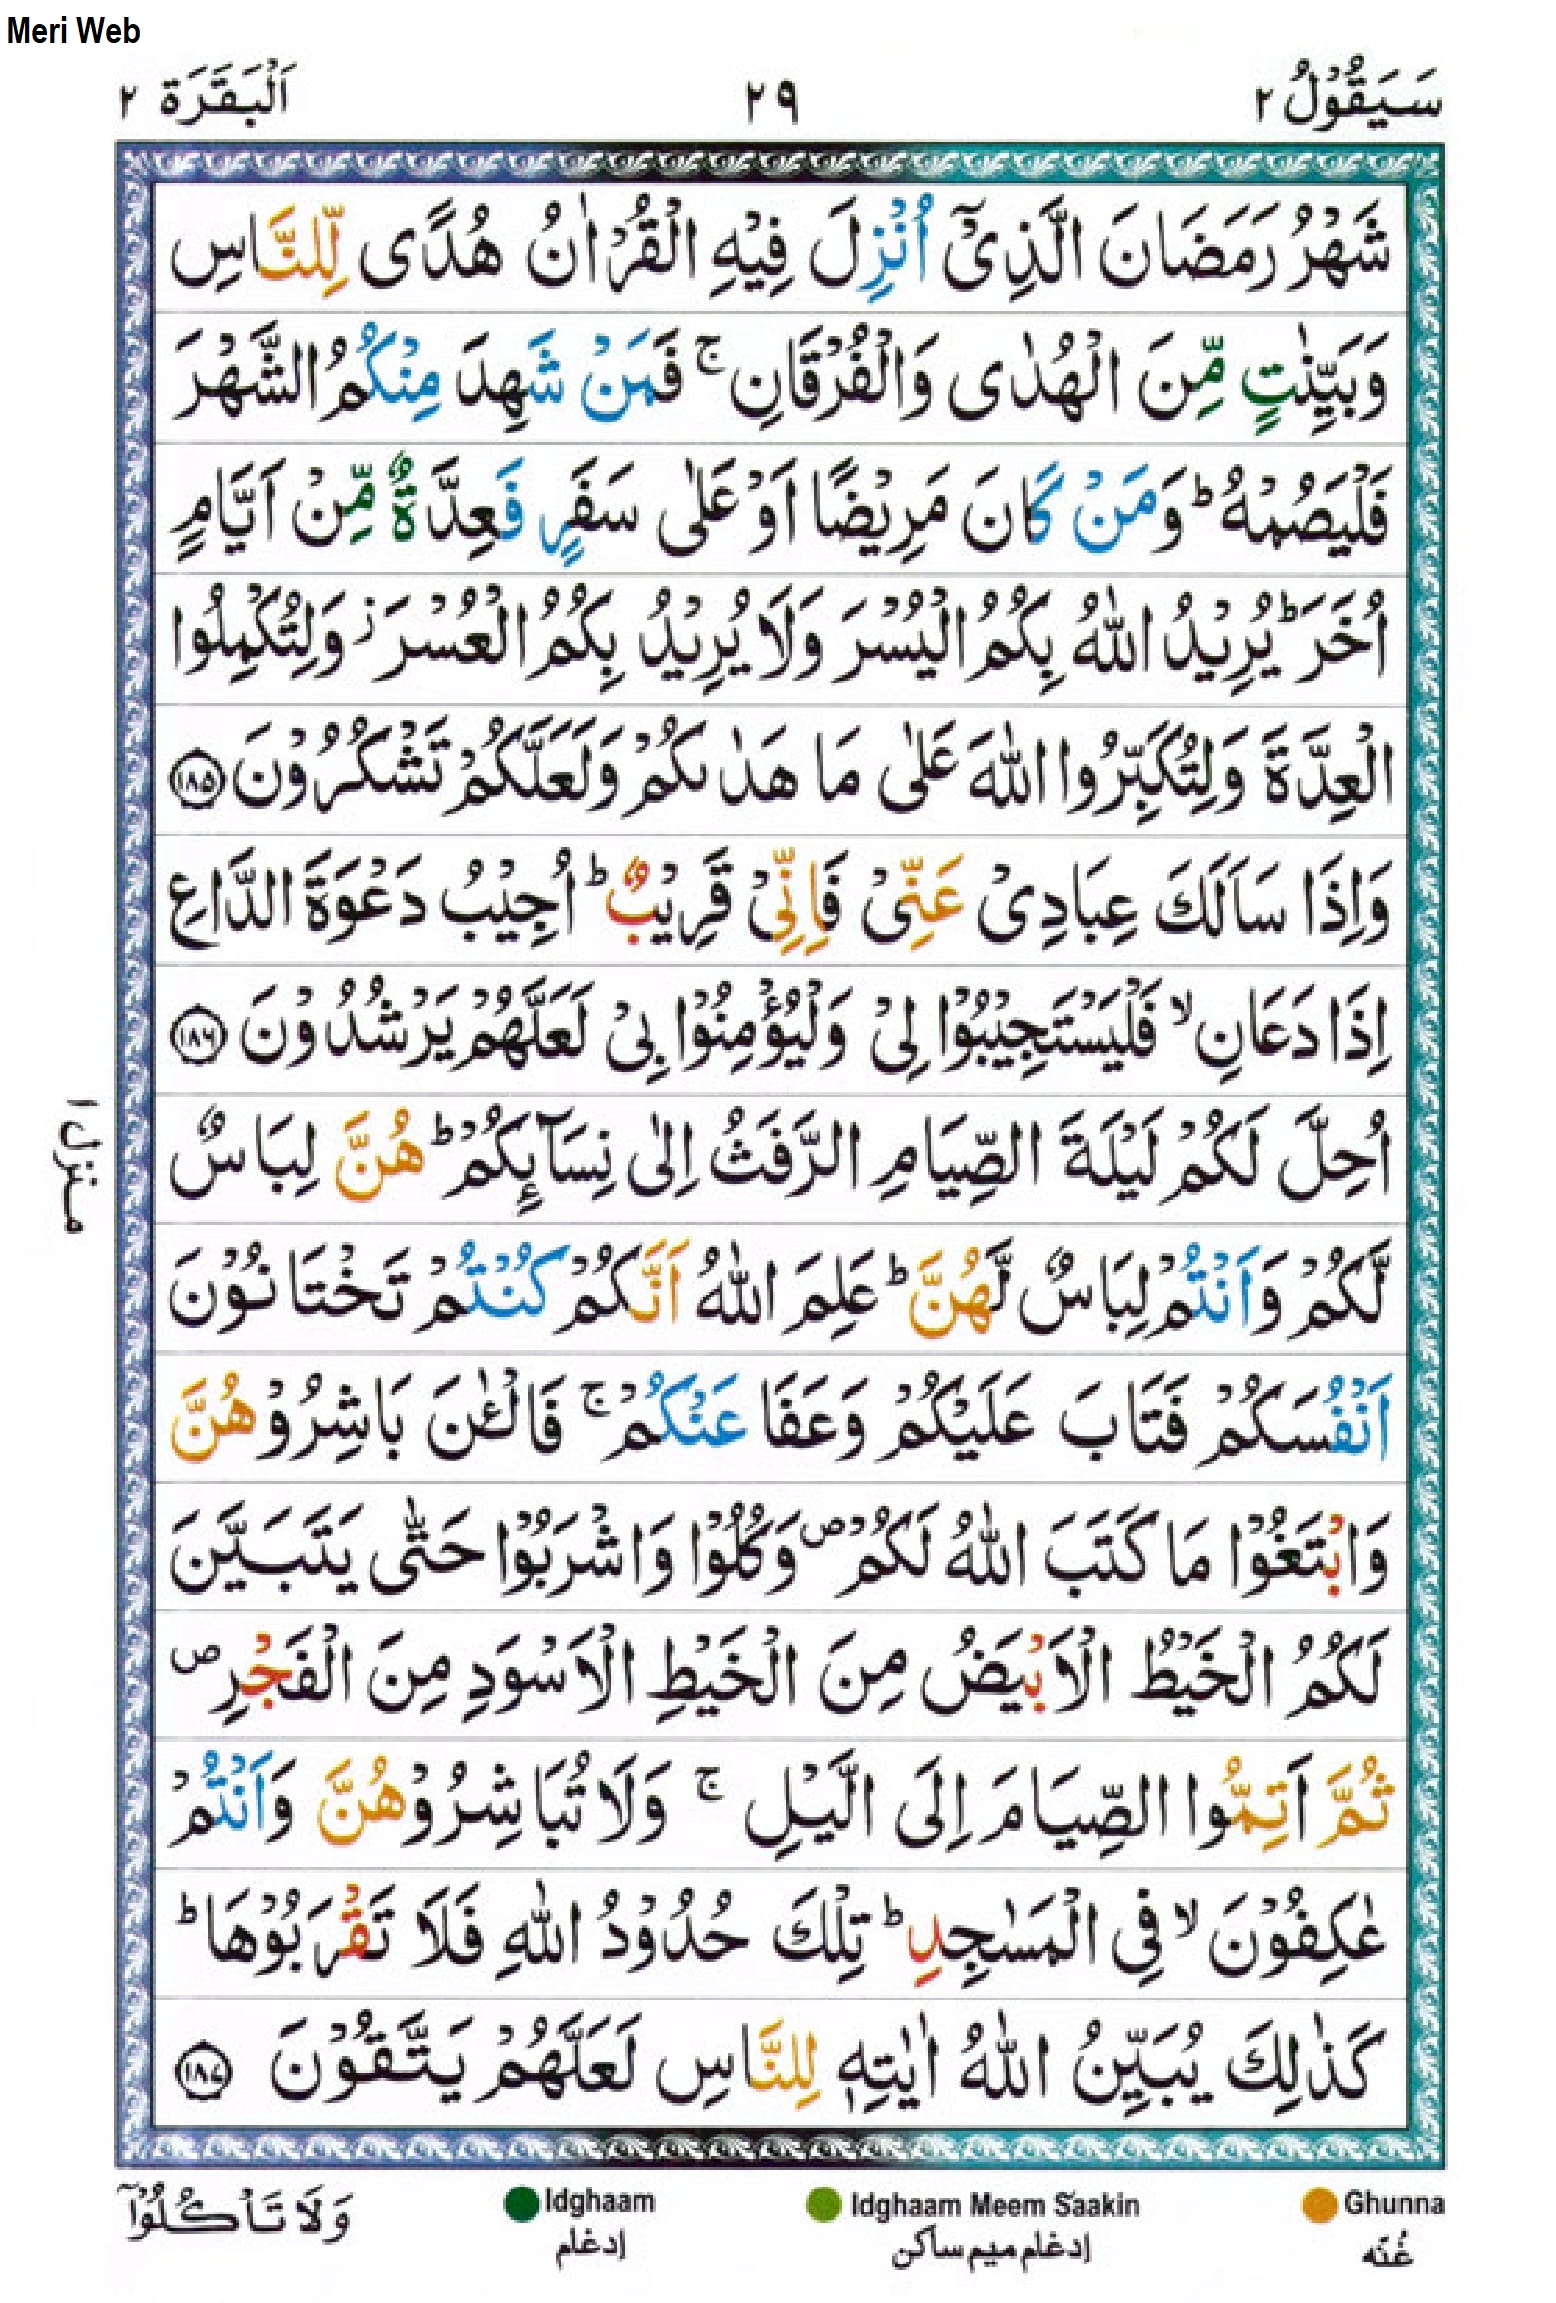 Meri Web
سَيَقُوْلُ ٢
٢٩
اَلْبَقَرَة ٢
شَهْرُ رَمَضَانَ الَّذِىْۤ اُنْزِلَ فِيْهِ الْقُرْاٰنُ هُدًى لِّلنَّاسِ
وَبَيِّنٰتٍ مِّنَ الْهُدٰى وَالْفُرْقَانِ ۚ فَمَنْ شَهِدَ مِنْكُمُ الشَّهْرَ
فَلْيَصُمْهُ ؕ وَمَنْ كَانَ مَرِيْضًا اَوْ عَلٰى سَفَرٍ فَعِدَّةٌ مِّنْ اَيَّامٍ
اُخَرَ ؕ يُرِيْدُ اللّٰهُ بِكُمُ الْيُسْرَ وَلَا يُرِيْدُ بِكُمُ الْعُسْرَ ز وَلِتُكْمِلُوا
الْعِدَّةَ وَلِتُكَبِّرُوا اللّٰهَ عَلٰى مَا هَدٰىكُمْ وَلَعَلَّكُمْ تَشْكُرُوْنَ ١٨٥
وَاِذَا سَاَلَكَ عِبَادِىْ عَنِّىْ فَاِنِّىْ قَرِيْبٌ ؕ اُجِيْبُ دَعْوَةَ الدَّاعِ
اِذَا دَعَانِ ۙ فَلْيَسْتَجِيْبُوْا لِىْ وَلْيُؤْمِنُوْا بِىْ لَعَلَّهُمْ يَرْشُدُوْنَ ١٨٦
اُحِلَّ لَكُمْ لَيْلَةَ الصِّيَامِ الرَّفَثُ اِلٰى نِسَآئِكُمْ ؕ هُنَّ لِبَاسٌ
لَّكُمْ وَاَنْتُمْ لِبَاسٌ لَّهُنَّ ؕ عَلِمَ اللّٰهُ اَنَّكُمْ كُنْتُمْ تَخْتَانُوْنَ
اَنْفُسَكُمْ فَتَابَ عَلَيْكُمْ وَعَفَا عَنْكُمْ ۚ فَالْـٰٔنَ بَاشِرُوْهُنَّ
وَابْتَغُوْا مَا كَتَبَ اللّٰهُ لَكُمْ ص وَكُلُوْا وَاشْرَبُوْا حَتّٰى يَتَبَيَّنَ
لَكُمُ الْخَيْطُ الْاَبْيَضُ مِنَ الْخَيْطِ الْاَسْوَدِ مِنَ الْفَجْرِ ص
ثُمَّ اَتِمُّوا الصِّيَامَ اِلَى الَّيْلِ ۚ وَلَا تُبَاشِرُوْهُنَّ وَاَنْتُمْ
عٰكِفُوْنَ ۙ فِى الْمَسٰجِدِ ؕ تِلْكَ حُدُوْدُ اللّٰهِ فَلَا تَقْرَبُوْهَا ؕ
كَذٰلِكَ يُبَيِّنُ اللّٰهُ اٰيٰتِهٖ لِلنَّاسِ لَعَلَّهُمْ يَتَّقُوْنَ ١٨٧
منزل ١
وَلَا تَاْكُلُوْۤا
Idghaam
ادغام
Idghaam Meem Saakin
ادغام میم ساکن
Ghunna
غُنّه